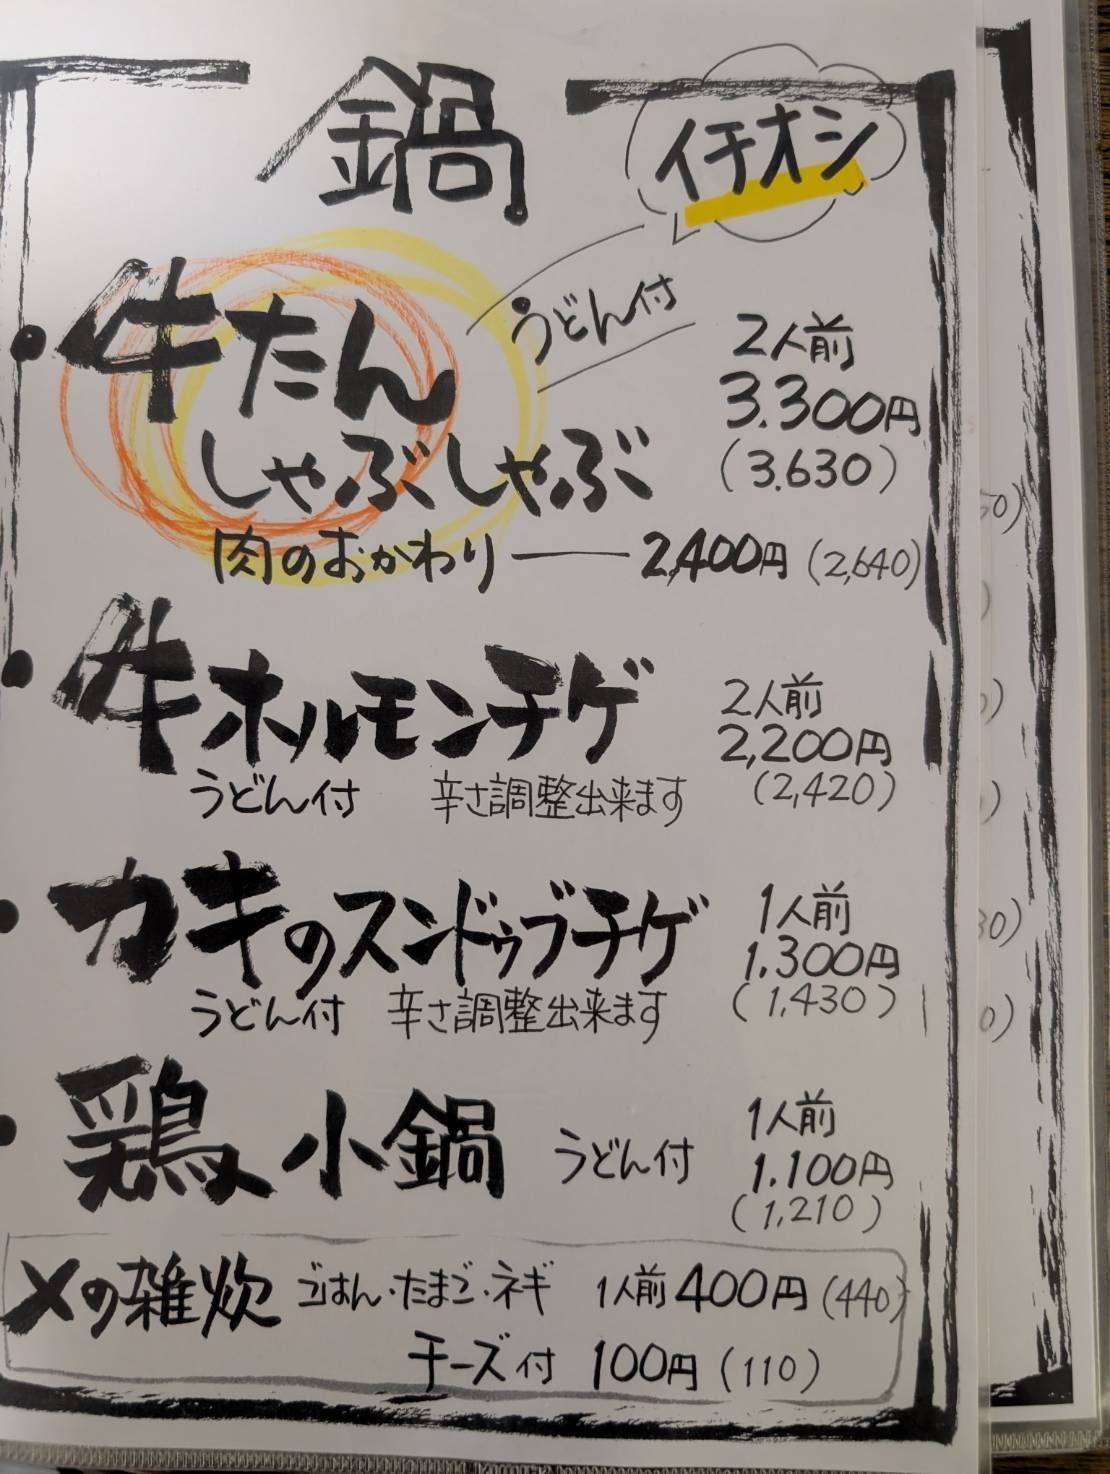 鍋
イチオシ
・牛たん
しゃぶしゃぶ
うどん付
2人前
3.300円
(3.630)
肉のおかわり — 2,400円 (2,640)
・牛ホルモンチゲ
うどん付 辛さ調整出来ます
2人前
2,200円
(2,420)
・カキのスンドゥブチゲ
うどん付 辛さ調整出来ます
1人前
1.300円
(1,430)
・鶏小鍋 うどん付
1人前
1.100円
(1,210)
〆の雑炊 ごはん・たまご・ネギ 1人前 400円 (440)
チーズ付 100円 (110)